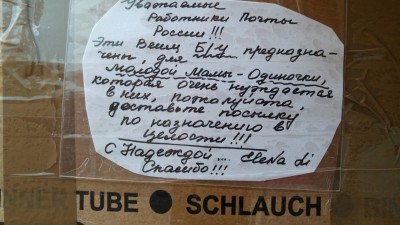 Уважаемые
Работники Почты
России!!!
Эти Вещи Б/У предназна-
чены, для
молодой Мамы-Одиночки,
которая очень нуждается
в них, пожалуйста,
доставьте посылку
по назначению в
целости!!!
С Надеждой... Elena Li
Спасибо!!!
INNER TUBE ● SCHLAUCH ●